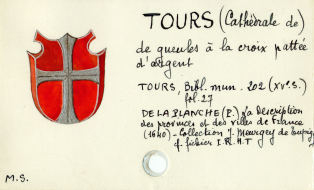 TOURS (Cathédrale de)
de gueules à la croix pattée
d'argent
TOURS, Bibl. mun. 202 (XVe s.)
fol. 27
DE LA PLANCHE (E.), La Description
des provinces et des villes de France
(1640) - Collection J. Meurgey de Tupigny
cf. fichier I.R.H.T
M.S.